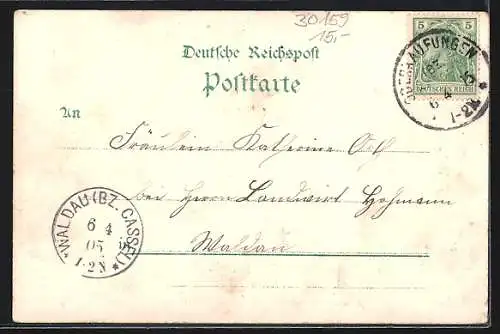 30159
15,-
5 5
DEUTSCHES REICH
OBERKAUFUNGEN
6 4
1-2N
Deutsche Reichspost
Postkarte
An
Fräulein Katherine
bei Herrn Landwirt Hohmann
Waldau
*WALDAU (BZ. CASSEL)*
6 4
05
1-2N